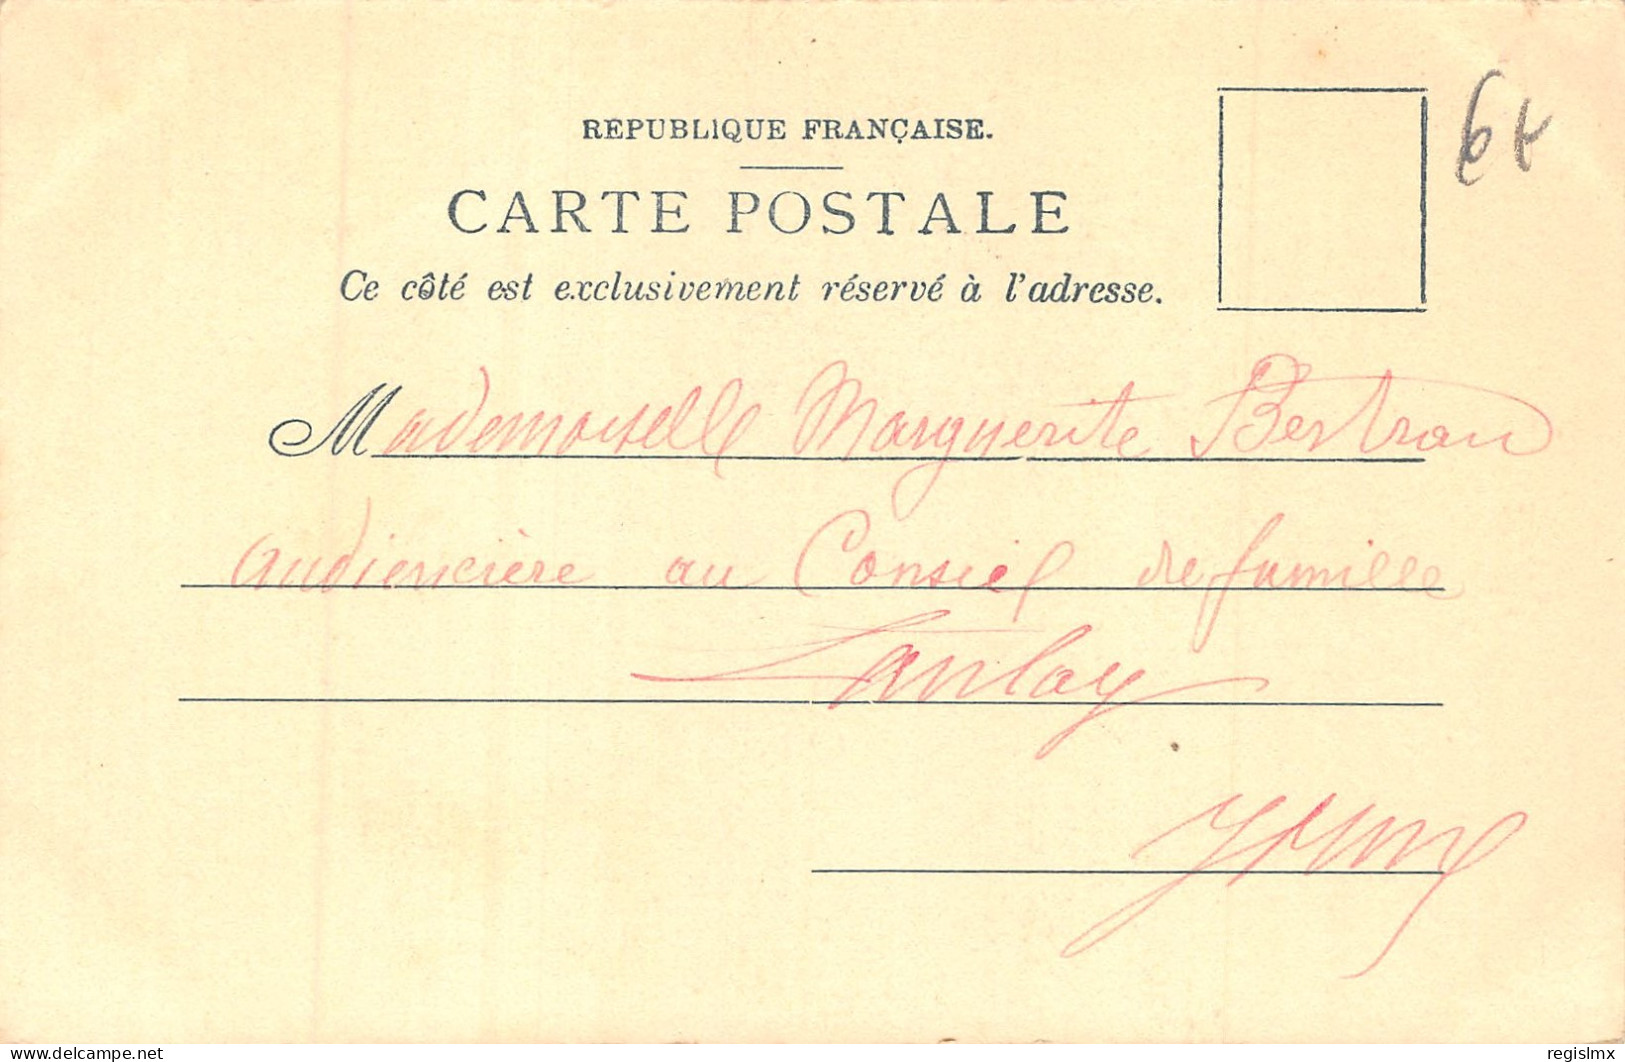 REPUBLIQUE FRANÇAISE.
CARTE POSTALE
Ce côté est exclusivement réservé à l'adresse.
Mademoiselle Marguerite Bertrand
audiencière au Conseil de famille
Tanlay
Yonne
delcampe.net
regislmx